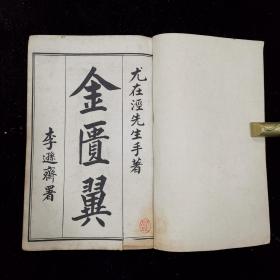 尤在涇先生手著
金匱翼
李遜齋署